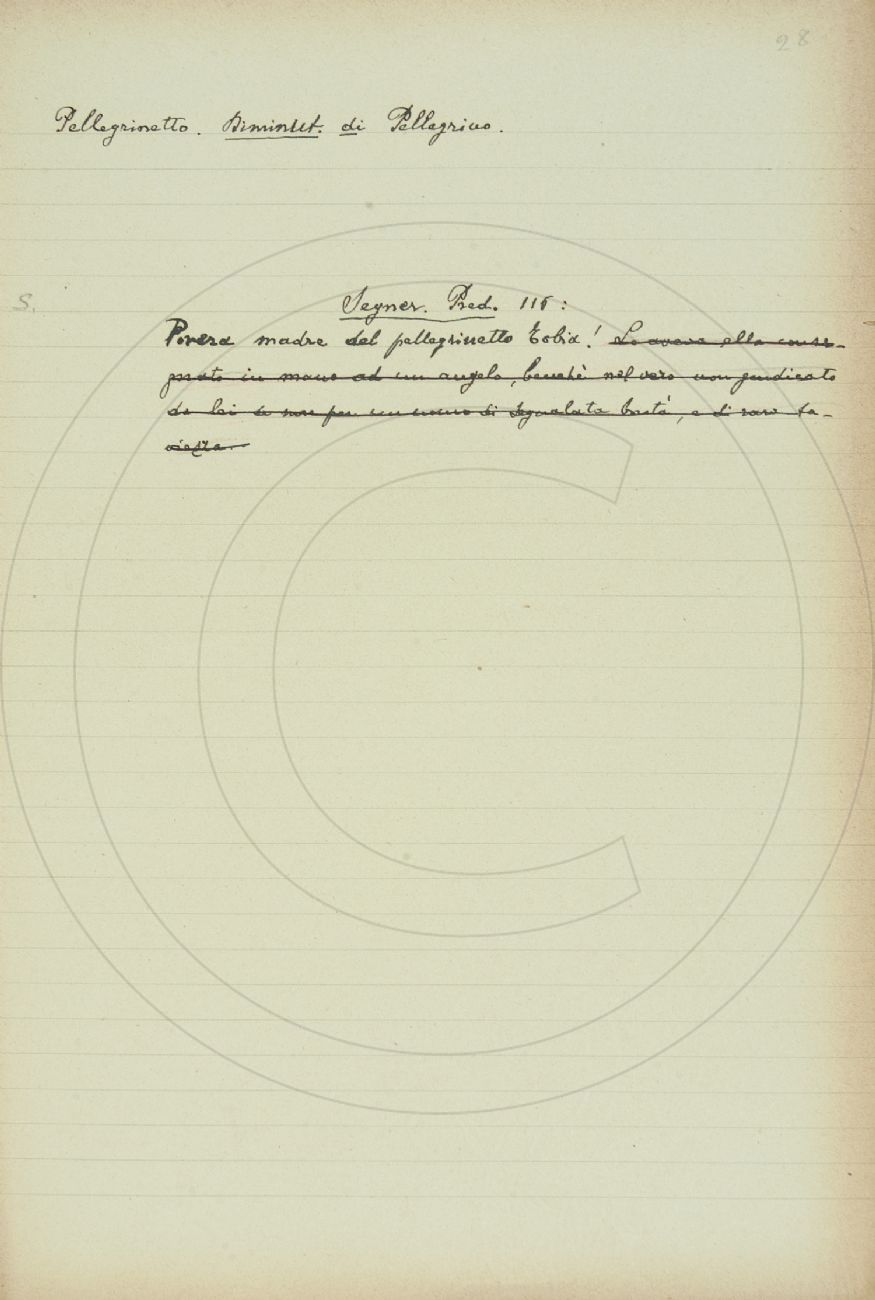 28
Pellegrinetto. Diminut. di Pellegrino.
S.
Segner. Pred. 115:
Povera madre del pellegrinetto Tobia! Lo aveva ella conse-
gnato in mano ad un angelo, benchè nel vero non giudicato
da lei se non per un uomo di segnalata bontà, e di rara sa-
viezza.